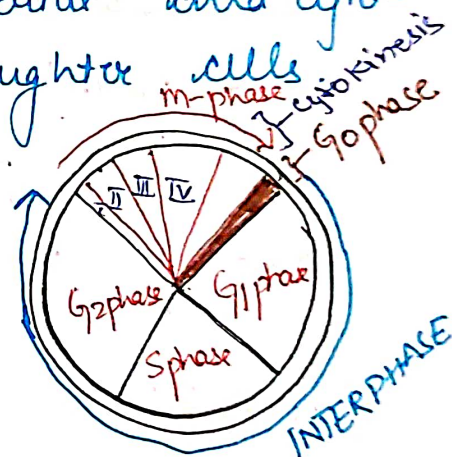 ughter cells
m-phase
}-cytokinesis
}-G0phase
I II III IV
G2phase
G1phase
Sphase
INTERPHASE